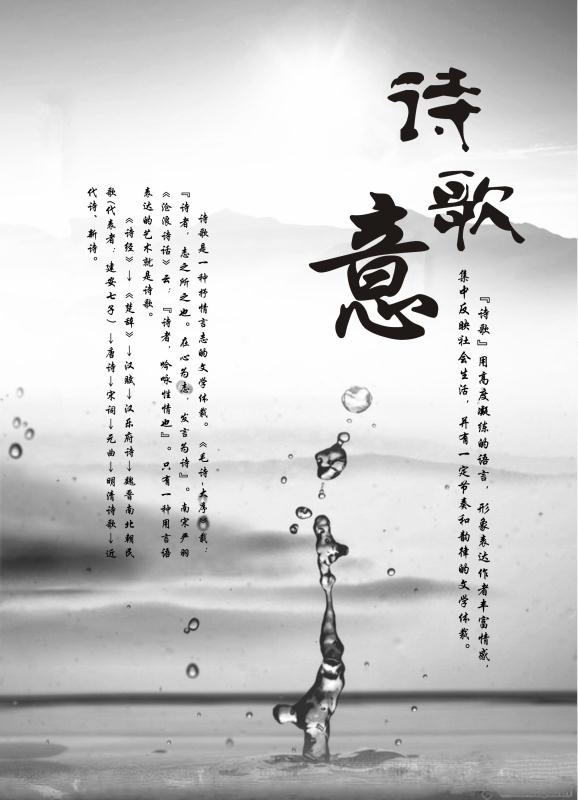 诗
歌
意
『诗歌』用高度凝练的语言，形象表达作者丰富情感，
集中反映社会生活，并有一定节奏和韵律的文学体裁。
诗歌是一种抒情言志的文学体裁。《毛诗-大序》载：
『诗者，志之所之也。在心为志，发言为诗』。南宋严羽
《沧浪诗话》云：『诗者，吟咏性情也』。只有一种用言语
表达的艺术就是诗歌。
《诗经》→《楚辞》→汉赋→汉乐府诗→魏晋南北朝民
歌(代表者：建安七子)→唐诗→宋词→元曲→明清诗歌→近
代诗、新诗。